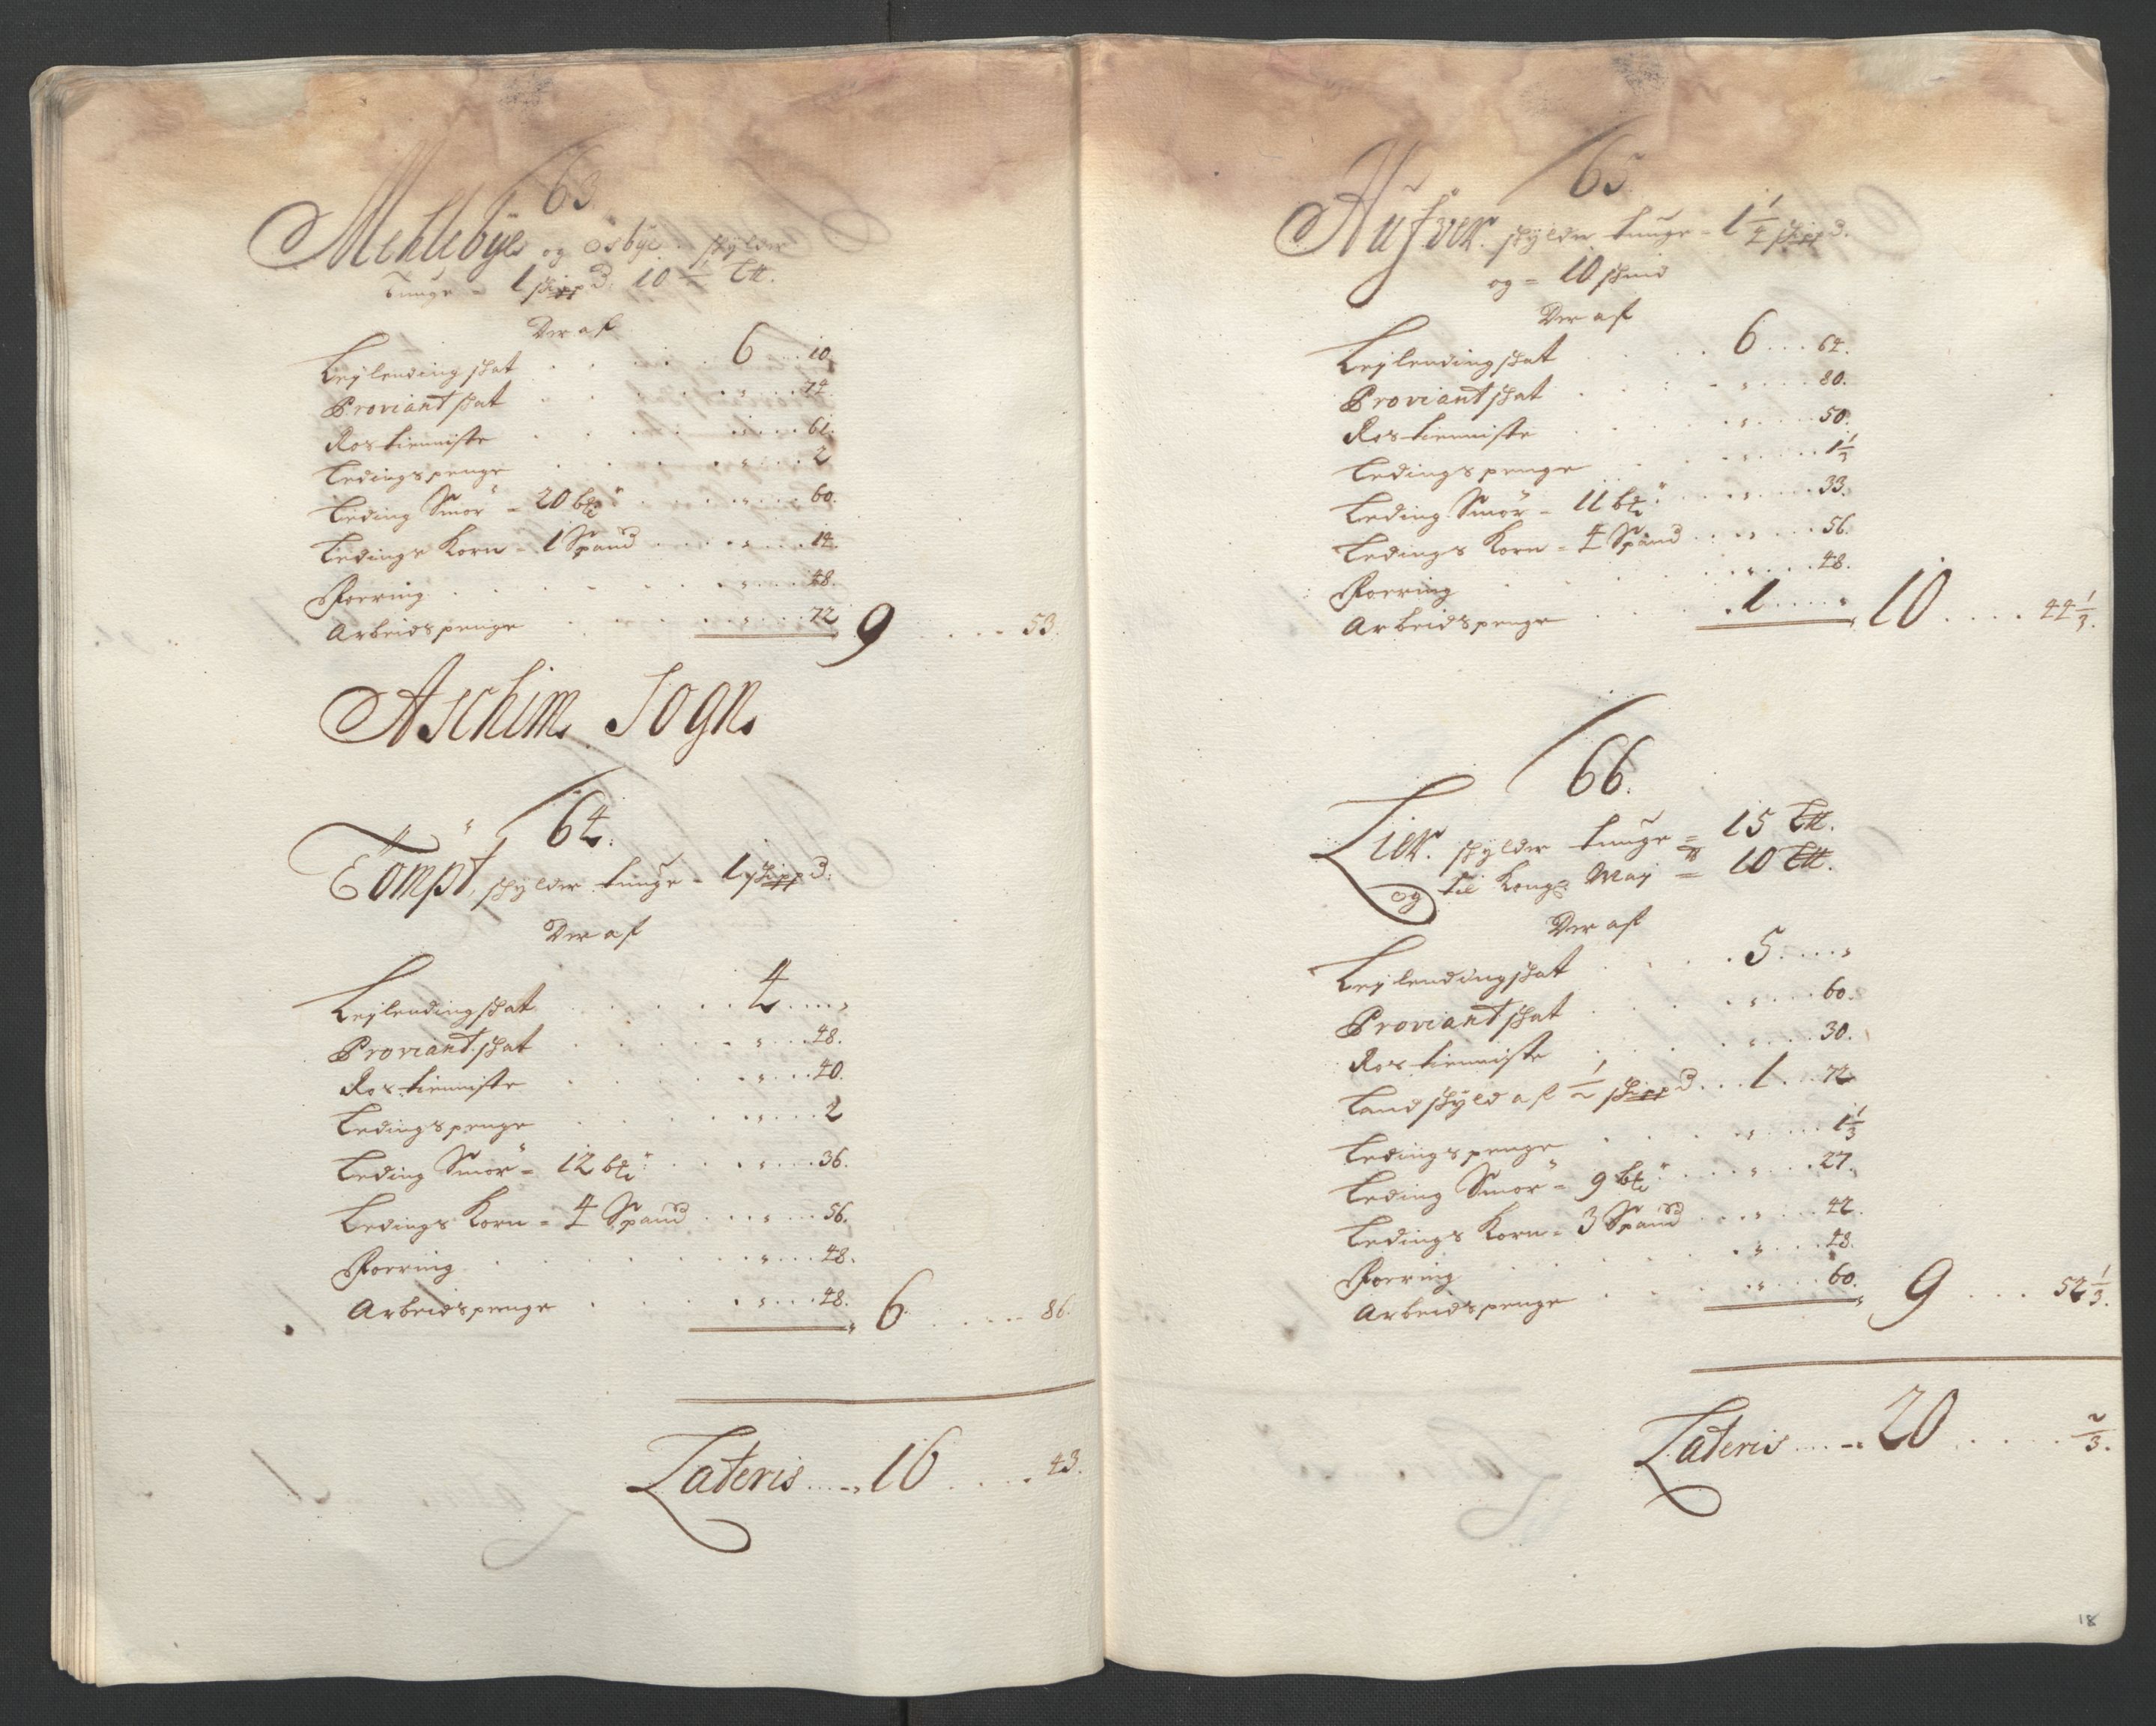 63
Mehlebÿe og Osbÿe skylder
tunge - 1 skippd: 10 ½ ℔.
Der af
Leylending skat . . . . . 6 . . . 10
Proviant skat . . . . . " . . . 74.
Ros tienniste . . . . . " . . . 61.
Ledingspenge . . . . . " . . . 2
Leding Smör - 20 bℓ: . . . " . . . 60.
Ledings Korn - 1 Spand . . . " . . . 14.
Foering . . . . . " . . . 48.
Arbeidspenge . . . . . " . . . 72 9 . . . . 53.
Aschim Sogn
64.
Tömpt, skylder tunge - 1 skippd:
Der af
Leylending skat . . . . . 4 . . . "
Proviant skat . . . . . " . . . 48.
Ros tienniste . . . . . " . . . 40.
Ledingspenge . . . . . " . . . 2
Leding Smör - 12 bℓ: . . . " . . . 36.
Ledings Korn - 4 Spand . . . " . . . 56.
Foering . . . . . " . . . 48.
Arbeidspenge . . . . . " . . . 48. 6 . . . . 86.
Lateris . . . 16 . . . . 43.
65
skylder tunge - 1 ¼ skippd.
og - 10 skind
Der af
Leylending skat . . . . . 6 . . . 64.
Proviant skat . . . . . " . . . 80.
Ros tienniste . . . . . " . . . 50.
Ledingspenge . . . . . " . . . 1⅓
Leding Smör - 11 bℓ: . . . " . . . 33.
Ledings Korn - 4 Spand . . . " . . . 56.
Foering . . . . . " . . . 48.
Arbeidspenge . . . . . 1 . . . " 10 . . . . 44⅓.
66.
Lier. skylder tunge = 15 ℔.
og til Kong: May = 10 ℔.
Der af
Leylending skat . . . . . 5 . . . "
Proviant skat . . . . . " . . . 60.
Ros tienniste . . . . . " . . . 30.
Landskyld af ½ skippd . . . 1 . . . 72
Ledingspenge . . . . . " . . . 1⅓
Leding Smör - 9 bℓ: . . . " . . . 27.
Ledings Korn - 3 Spand . . . " . . . 42.
Foering . . . . . " . . . 48.
Arbeidspenge . . . . . " . . . 60. 9 . . . 52⅓.
Lateris . . . 20 . . . . ⅔.
18